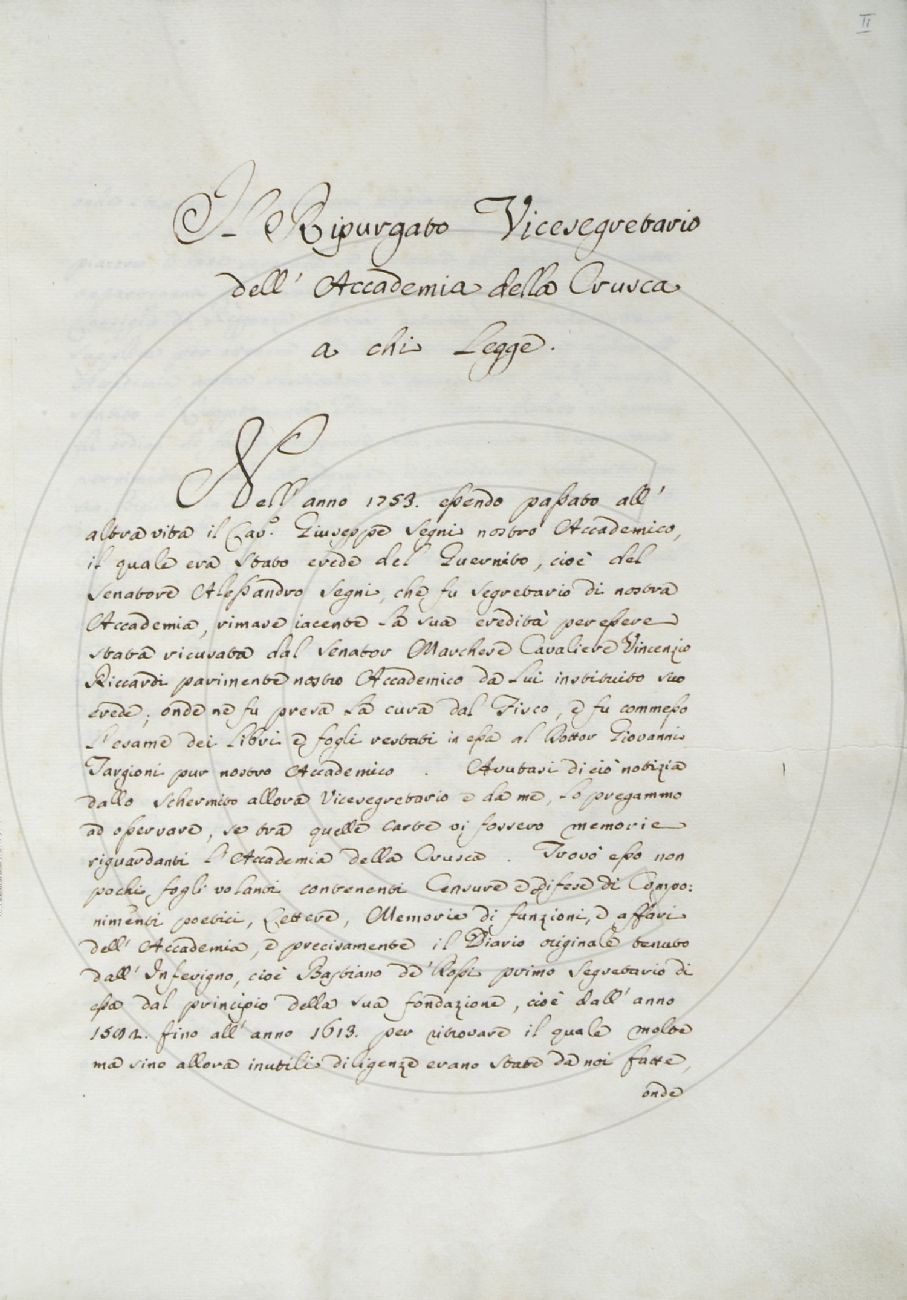 II
Il Ripurgato Vicesegretario
dell' Accademia della Crusca
a chi Legge.
Nell' anno 1753. essendo passato all'
altra vita il Cav.e Giuseppe Segni nostro Accademico,
il quale era stato erede del Guernito, cioè del
Senatore Alessandro Segni, che fu segretario di nostra
Accademia, rimase iacente la sua eredità per essere
stata ricusata dal Senator Marchese Cavaliere Vincenzio
Riccardi parimente nostro Accademico da lui instituito suo
erede; onde ne fu presa la cura dal Fisco, e fu commesso
l'esame dei libri e fogli restati in essa al Dottor Giovanni
Targioni pur nostro Accademico. Avutasi di ciò notizia
dallo Schermito allora Vicesegretario e da me, lo pregammo
ad osservare, se tra quelle carte vi fossero memorie
riguardanti l'Accademia della Crusca. Trovò esso non
pochi fogli volanti contenenti Censure e difese di Compo:
nimenti poetici, Lettere, Memorie di funzioni, e affari
dell' Accademia, e precisamente il Diario originale tenuto
dall' Inferigno, cioè Bastiano de' Rossi primo Segretario di
essa dal principio della sua fondazione, cioè dall' anno
fino all' anno 1613. per ritrovare il quale molte
ma sino allora inutili diligenze erano state da noi fatte,
onde